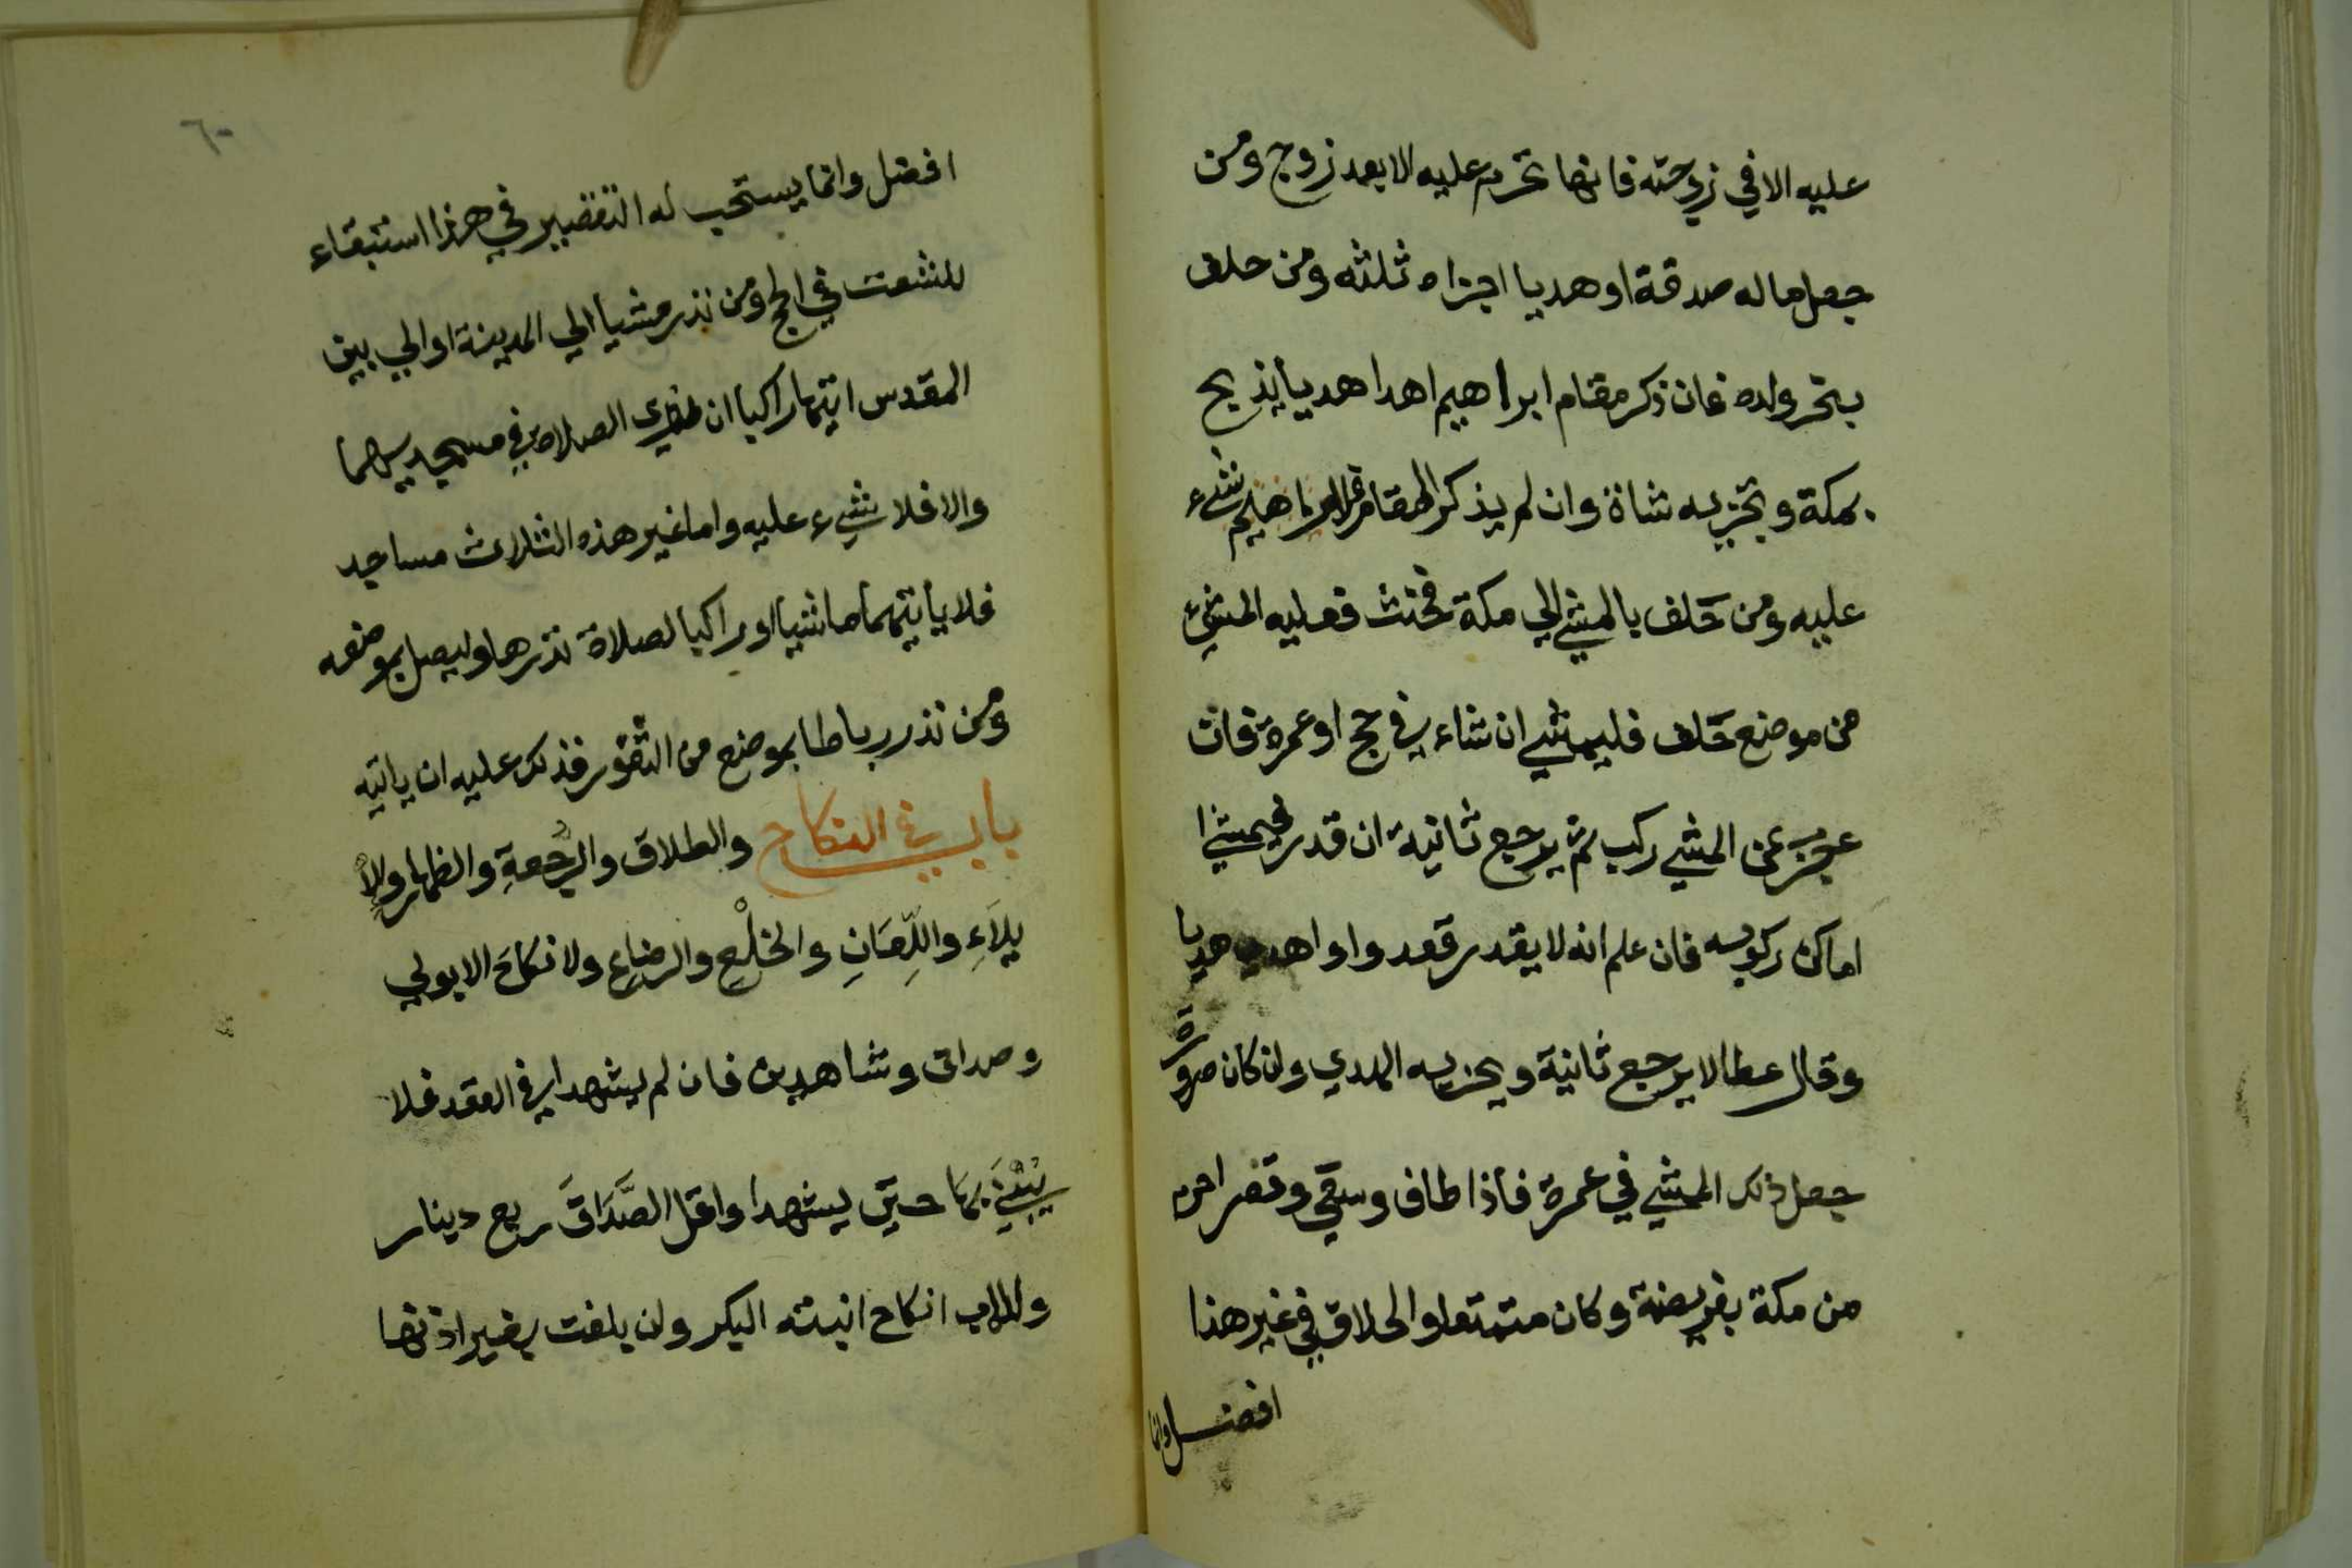 عليه الا في زوجته فانها تحرم عليه الا بعد زوج ومن
جعل ماله صدقة او هديا اجزاه ثلثه ومن حلف
بنحر ولده فان ذكر مقام ابراهيم اهدا هديا يذبح
بمكة وتجزيه شاة وان لم يذكر المقام فلا شيء
عليه ومن حَلف بالمشي الي مكة فحنث فعليه المشيء
من موضع حَلف فليمشي ان شاء في حج او عمرة فان
عجز عن المشي ركب ثم يرجع ثانية ان قدر فيمشي
اماكن ركوبه فان علم انه لا يقدر قعد واو اهدي هديا
وقال عطا لا يرجع ثانية ويجزيه الهدي وان كان صرورة
جعل ذلك المشي في عمرة فاذا طاف وسقي وقصر احرم
من مكة بفريضة وكان متمتعا والحلاق في غير هذا
افضل وانما
٦٠
افضل وانما يستحب له التقصير في هذا استبقاء
للشعث في الحج ومن نذر مشيا الي المدينة او الي بيت
المقدس اتيهما راكبا ان نوي الصلاة في مسجديهما
والا فلا شيء عليه واما غير هذه الثلاث مساجد
فلا يأتيهما ماشيا او راكبا لصلاة نذرها وليصل بموضعه
ومن نذر رباطا بموضع من الثغور فذلك عليه ان ياتيه
باب في النكاح والطلاق والرجعةِ والظهار ولاِ
يلَاءِ واللِّعَانِ والخلْعِ والرضاع ولا نكاحَ الا بولي
وصداق وشاهدين فان لم يشهدا في العقد فلا
يَبْنِي بهَا حتي يشهدا واقل الصَّدَاقَ ربع دينار
وللاب انكاح ابنته البكر وان بلغت بغير اذنها